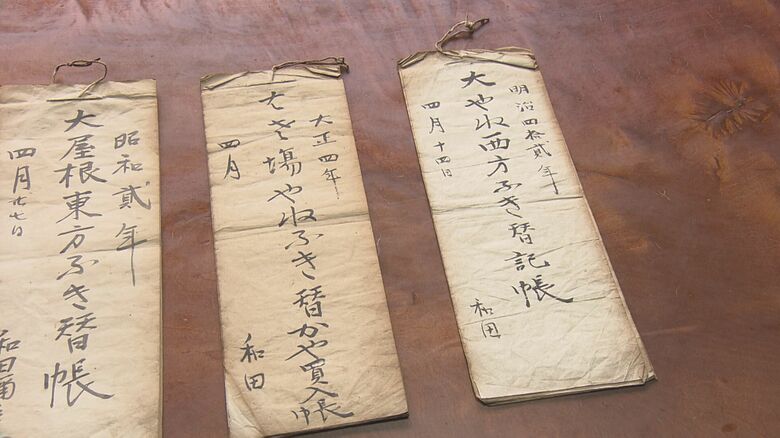 明治四拾貳年
大やね西方ふき替記帳
四月十四日
和田
大正四年
塲やねふき替かや買入帳
四月
和田
昭和貳年
大屋根東方ふき替帳
四月廿七日
和田